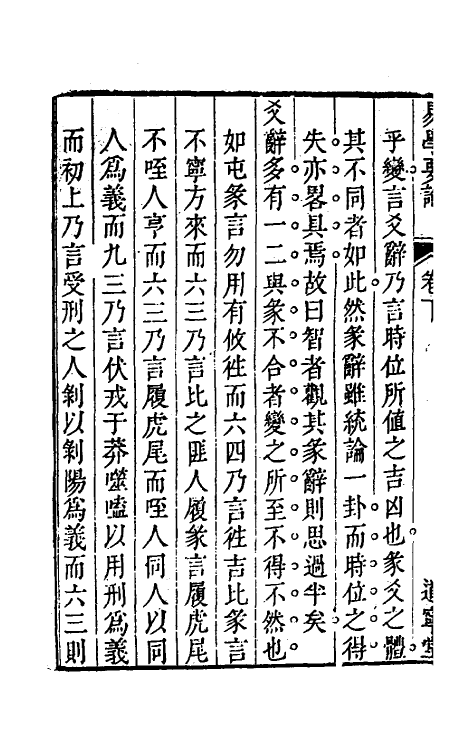 易學要說 卷下 遺寧堂
乎變言爻辭乃言時位所值之吉凶也彖爻之體
其不同者如此然彖辭雖統論一卦而時位之得
失亦畧具焉故曰智者觀其彖辭則思過半矣
爻辭多有一二與彖不合者變之所至不得不然也
如屯彖言勿用有攸徃而六四乃言徃吉比彖言
不寧方來而六三乃言比之匪人履彖言履虎尾
不咥人亨而六三乃言履虎尾而咥人同人以同
人爲義而九三乃言伏戎于莽噬嗑以用刑爲義
而初上乃言受刑之人剝以剝陽爲義而六三則